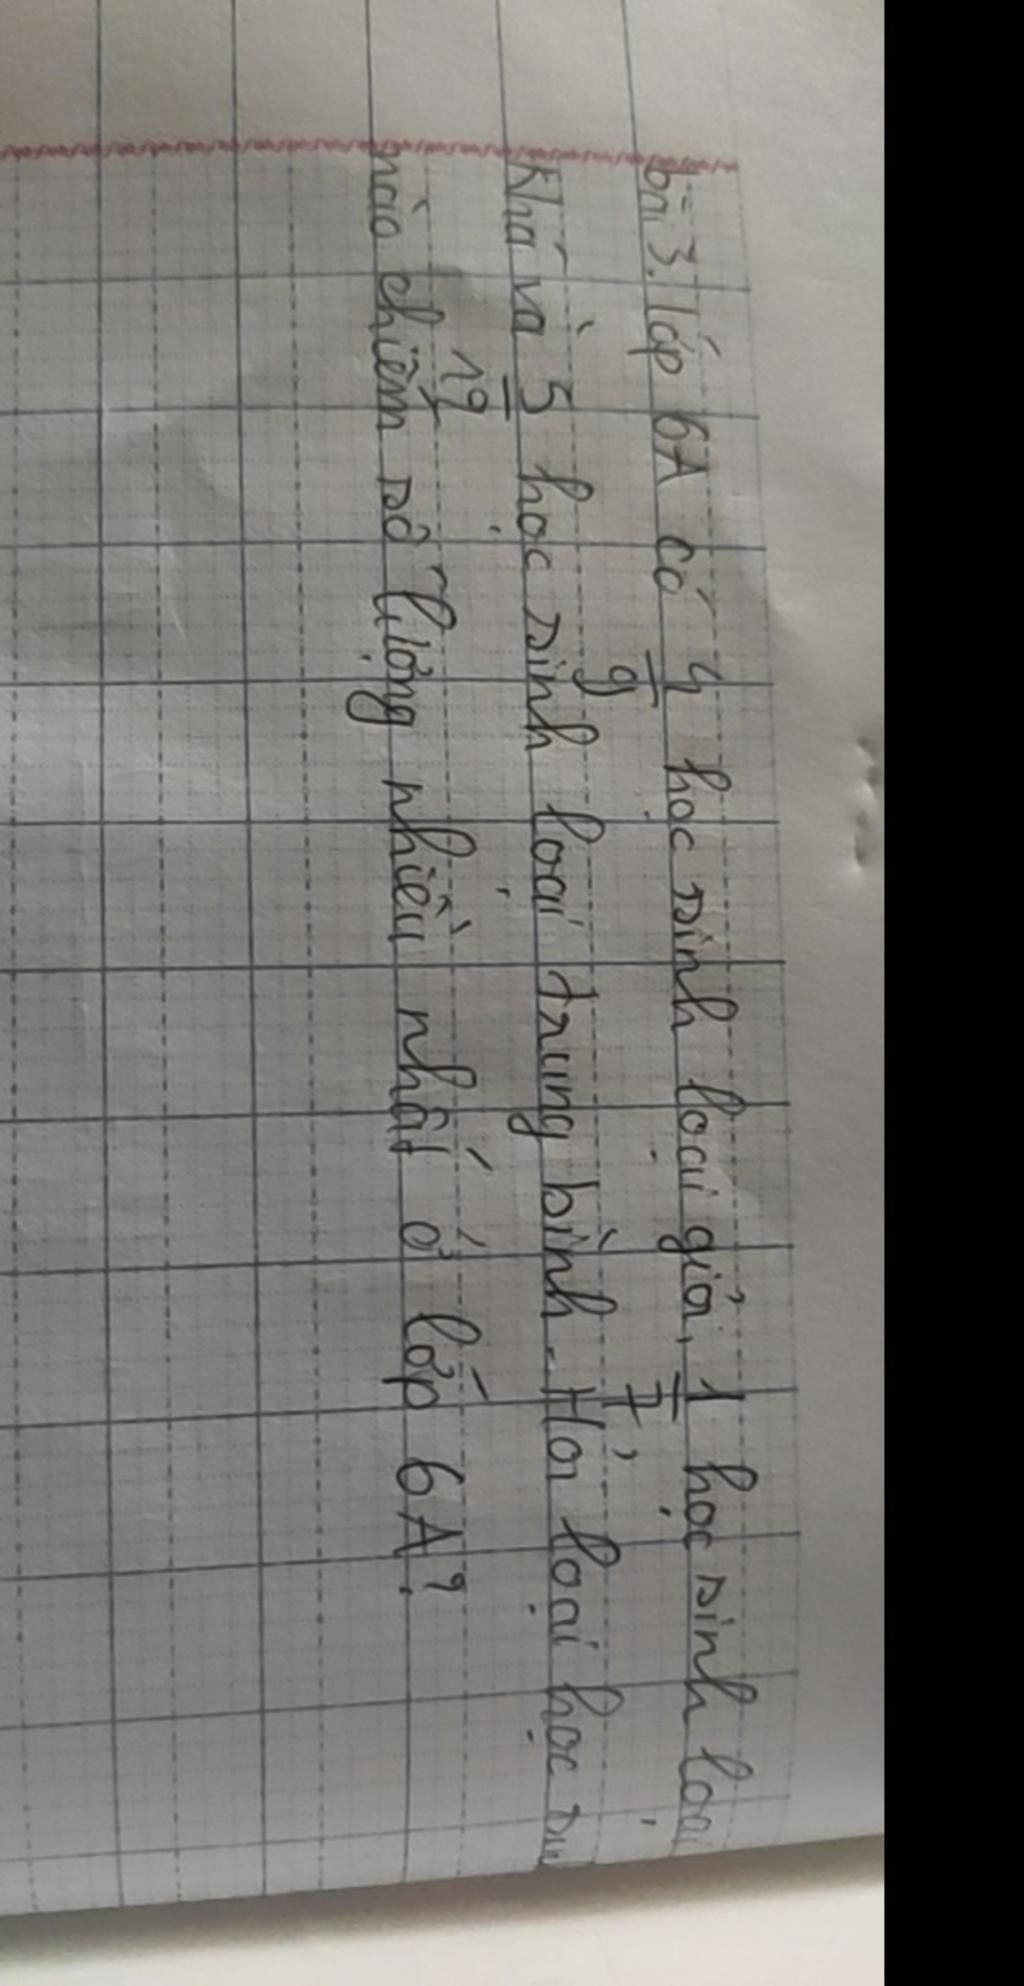 bài 3. lớp 6A có 4/9 học sinh loại giỏi, 1/7 học sinh loại
khá và 5/12 học sinh loại trung bình. Hỏi loại học sinh
nào chiếm số lượng nhiều nhất ở lớp 6A?